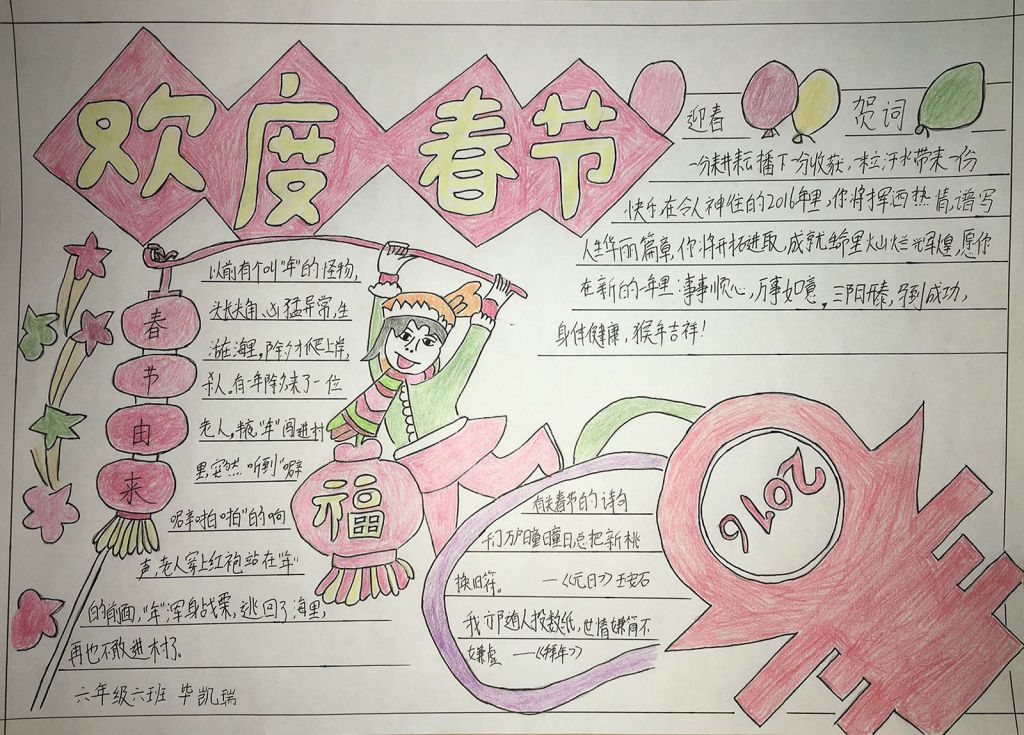 欢度春节
迎春 贺词
一分耕耘播下一分收获,一粒汗水带来一份
快乐,在令人神住的2016年里,你将挥洒热情,谱写
人生华丽篇章,你将开拓进取,成就生命里火山灿烂辉煌,愿你
在新的一年里:事事顺心,万事如意,三阳开泰,马到成功,
身体健康,猴年吉祥!
春节由来
以前有个叫"年"的怪物,
头长尖角,凶猛异常,生
活在海里,除夕才爬上岸,
杀人。有一年除夕来了一位
老人,半夜,"年"闯进村
里,突然听到"噼
啪啪"的响
声,老人穿上红袍站在"年"
的前面,"年"浑身战栗,逃回了海里,
再也不敢进村了。
六年级六班 毕凯瑞
福
有关春节的诗句
千门万户曈曈日总把新桃
换旧符。 —《元日》王安石
我亦随人投数纸,世情嫌简不
嫌虚 —《拜年》
2016